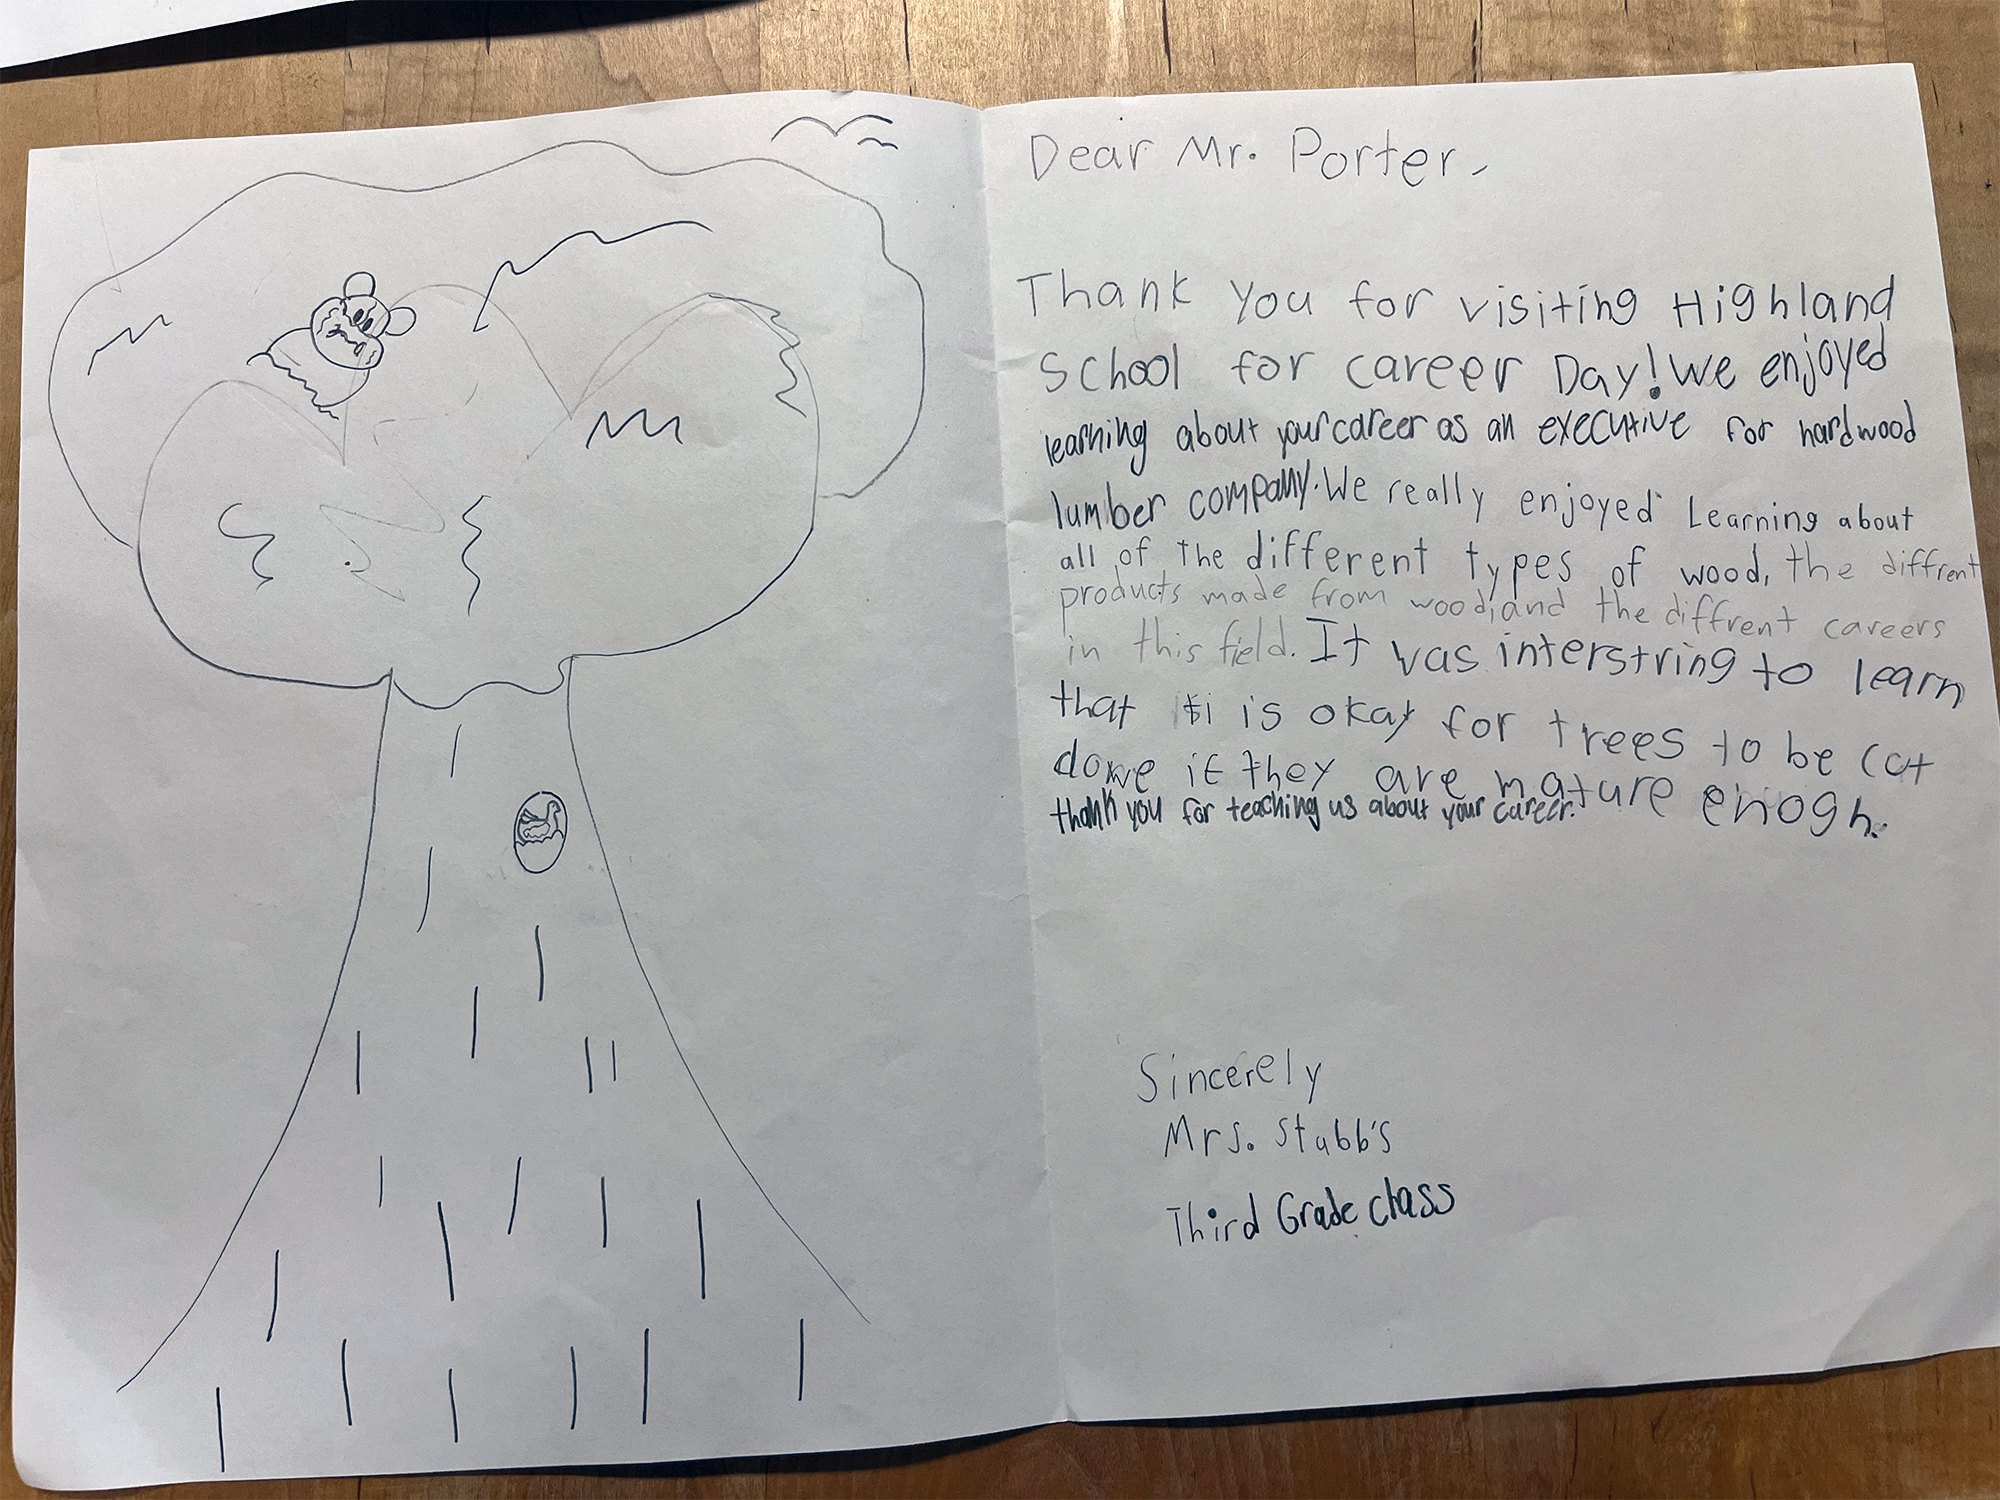 Dear Mr. Porter,
Thank you for visiting Highland
School for career Day! We enjoyed
learning about your career as an executive for hardwood
lumber company. We really enjoyed Learning about
all of the different types of wood, the diffrent
products made from wood, and the diffrent careers
in this field. It was interstring to learn
that it is okay for trees to be cot
dowe if they are mature enogh.
thank you for teaching us about your career.
Sincerely
Mrs. Stubb's
Third Grade class